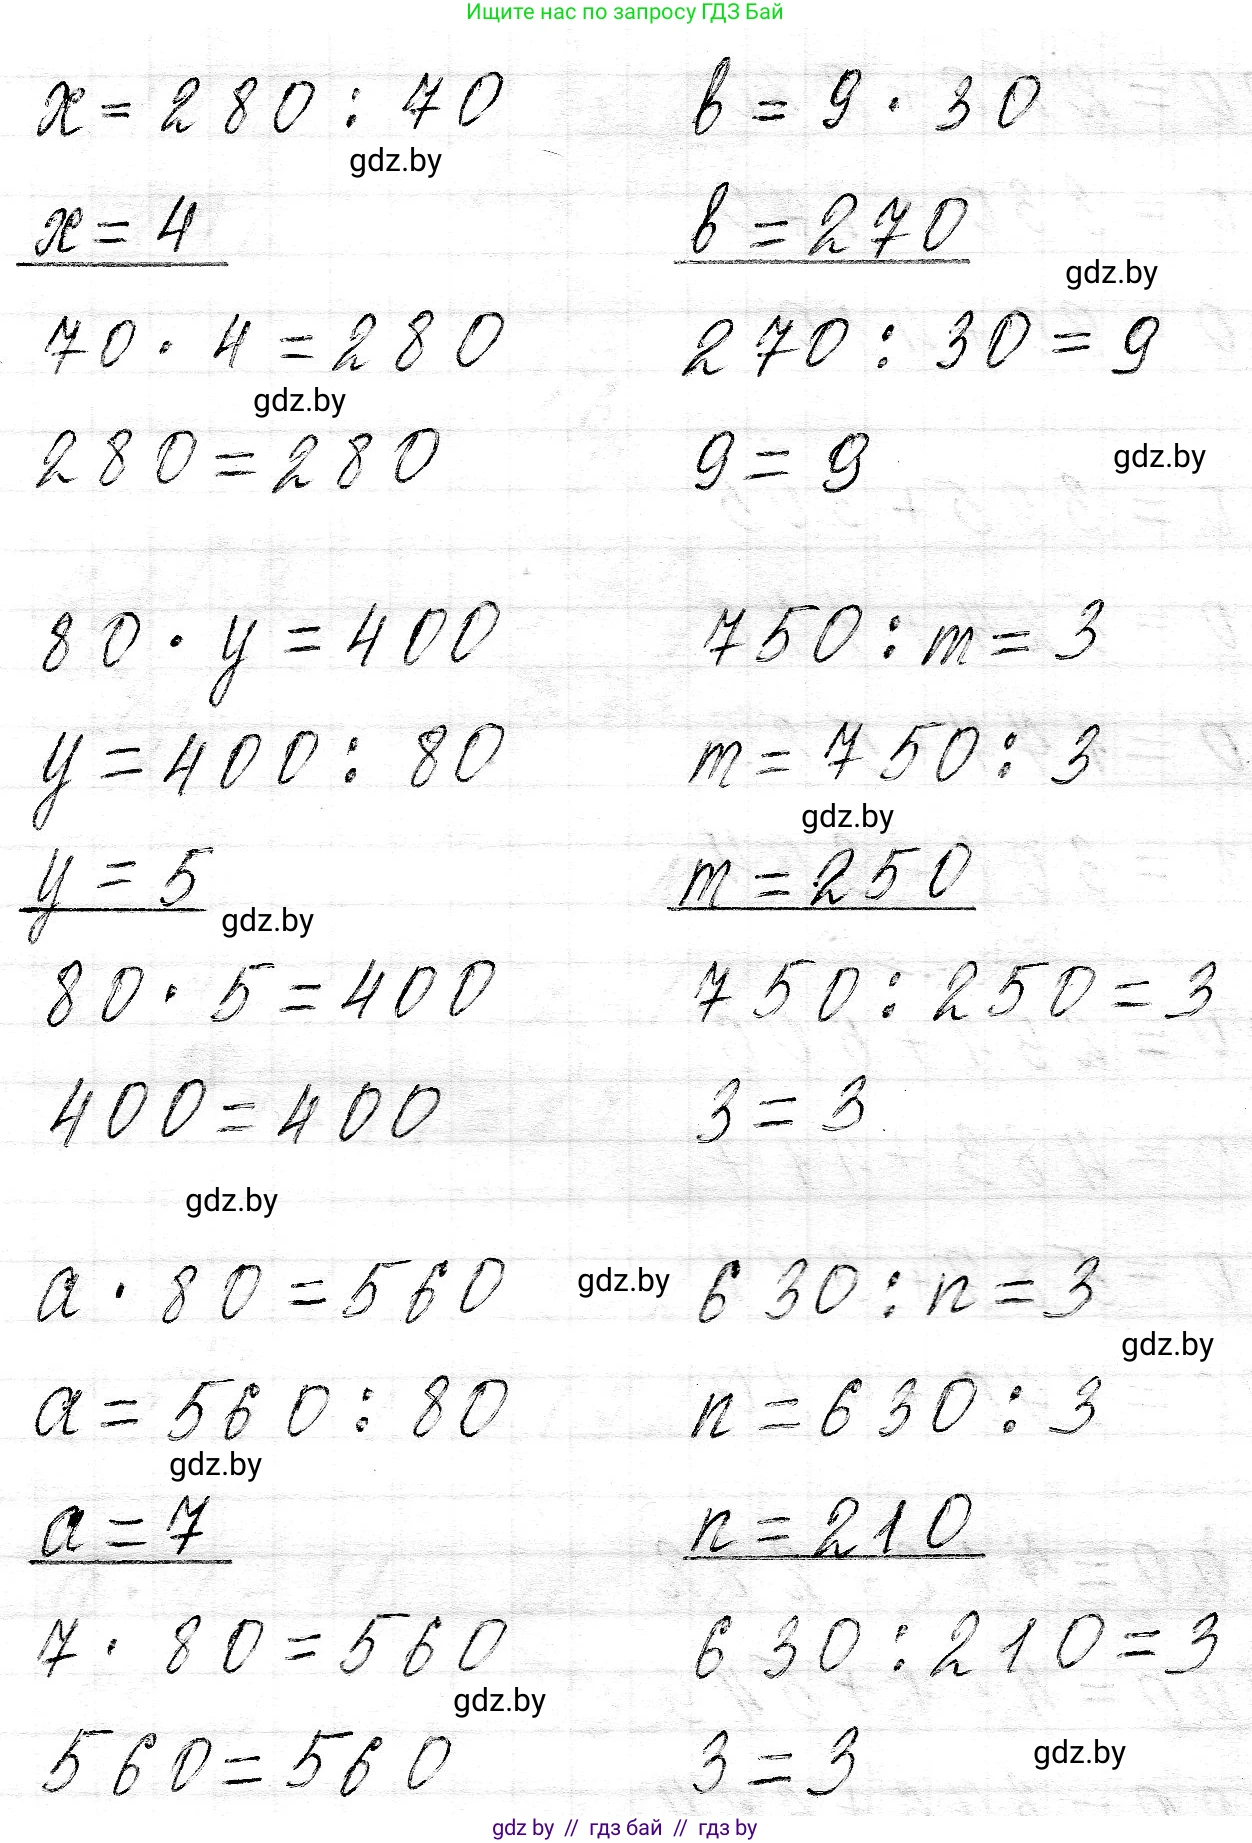 Ищите нас по запросу ГДЗ Бай
x = 280 : 70
gdz.by
x = 4
70 · 4 = 280
gdz.by
280 = 280
в = 9 · 30
в = 270
gdz.by
270 : 30 = 9
9 = 9
gdz.by
80 · y = 400
y = 400 : 80
y = 5
gdz.by
80 · 5 = 400
400 = 400
gdz.by
750 : m = 3
m = 750 : 3
gdz.by
m = 250
750 : 250 = 3
3 = 3
a · 80 = 560
gdz.by
a = 560 : 80
gdz.by
a = 7
7 · 80 = 560
gdz.by
560 = 560
630 : n = 3
gdz.by
n = 630 : 3
n = 210
630 : 210 = 3
3 = 3
gdz.by
gdz by // гдз бай // гдз by